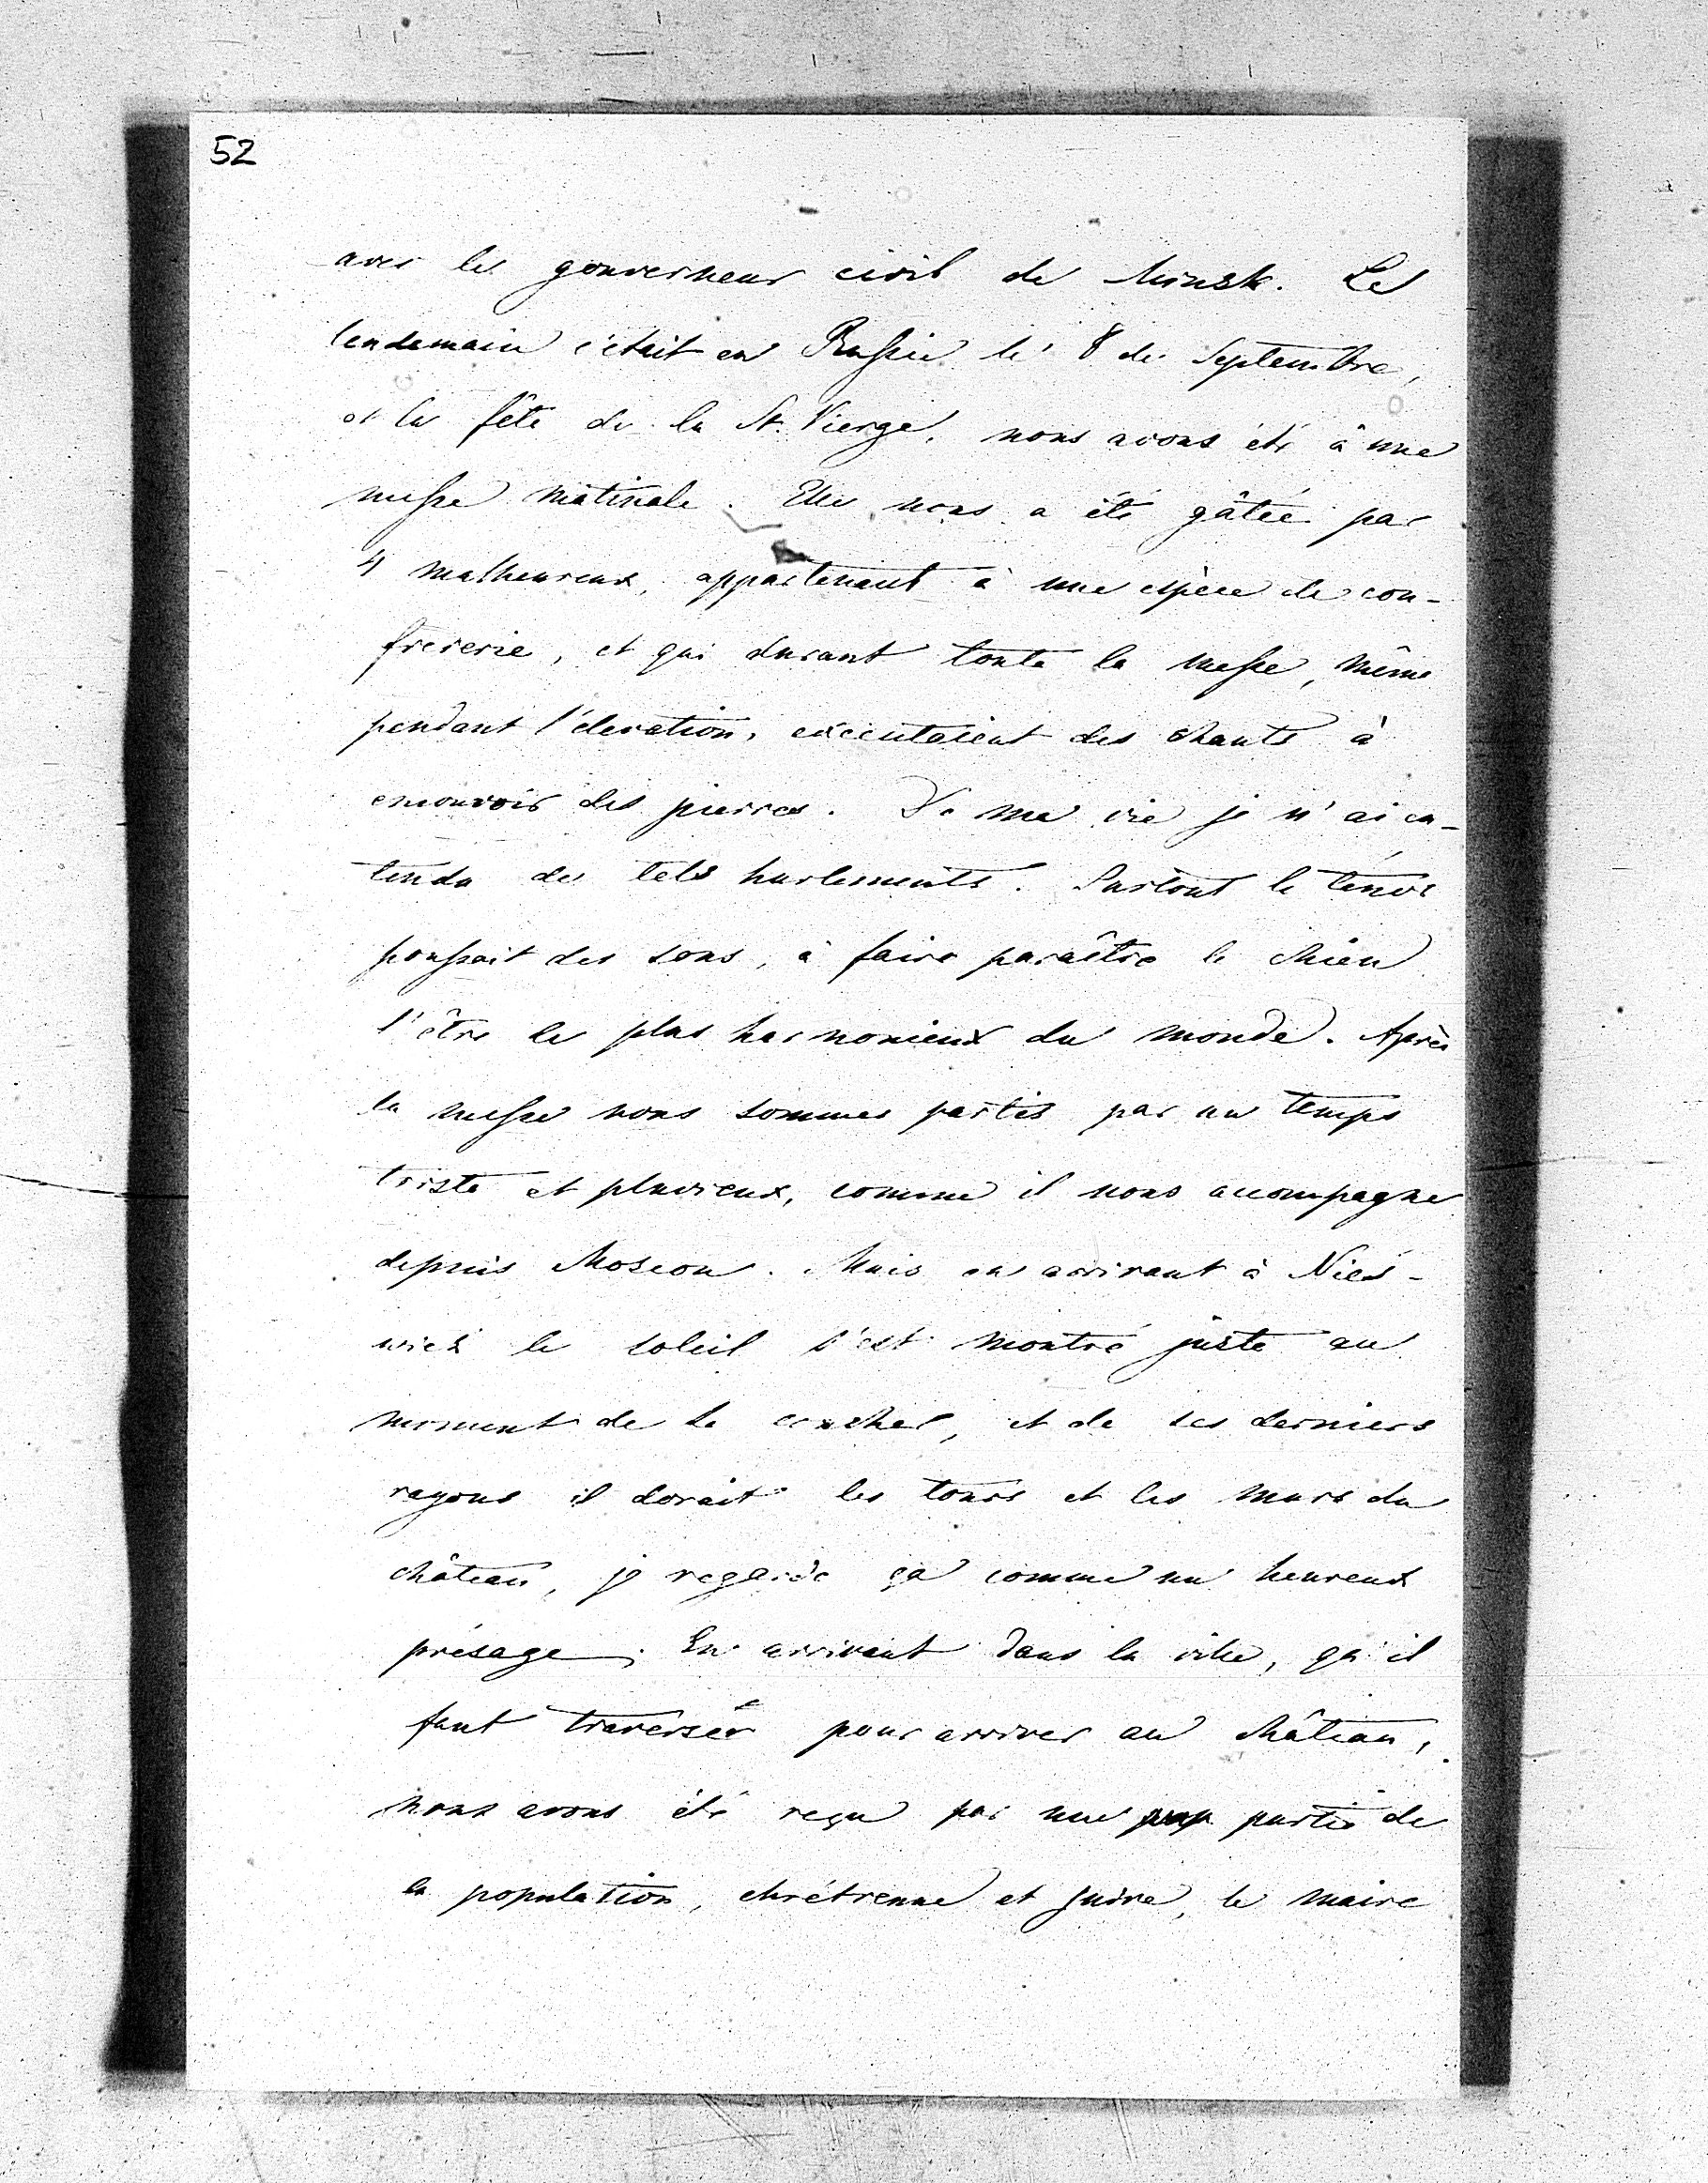 52
avec le gouverneur civil de Minsk. Le
lendemain c'était en Russie le 8 de Septembre,
et la fête de la St. Vierge, nous avons été à une
messe matinale. Elle nous a été gâtée par
4 malheureux, appartenant à une espèce de con-
frererie, et qui durant toute la messe, même
pendant l'élevation, exécutaient des chants à
emouvoir des pierres. De ma vie je n'ai en-
tendu de tels hurlements. Surtout le ténor
poussait des sons, à faire paraître le chien
l'être le plus harmonieux du monde. Après
la messe nous sommes partis par un temps
triste et pluvieux, comme il nous accompagne
depuis Moscou. Mais en arrivant à Nies-
wież le soleil s'est montré juste au
moment de se coucher, et de ses derniers
rayons il dorait les tours et les murs du
château, je regarde ça comme un heureux
présage; En arrivant dans la ville, qu'il
faut traverser pour arriver au château,
nous avons été reçu par une pop partie de
la population, chrétienne et juive, le maire